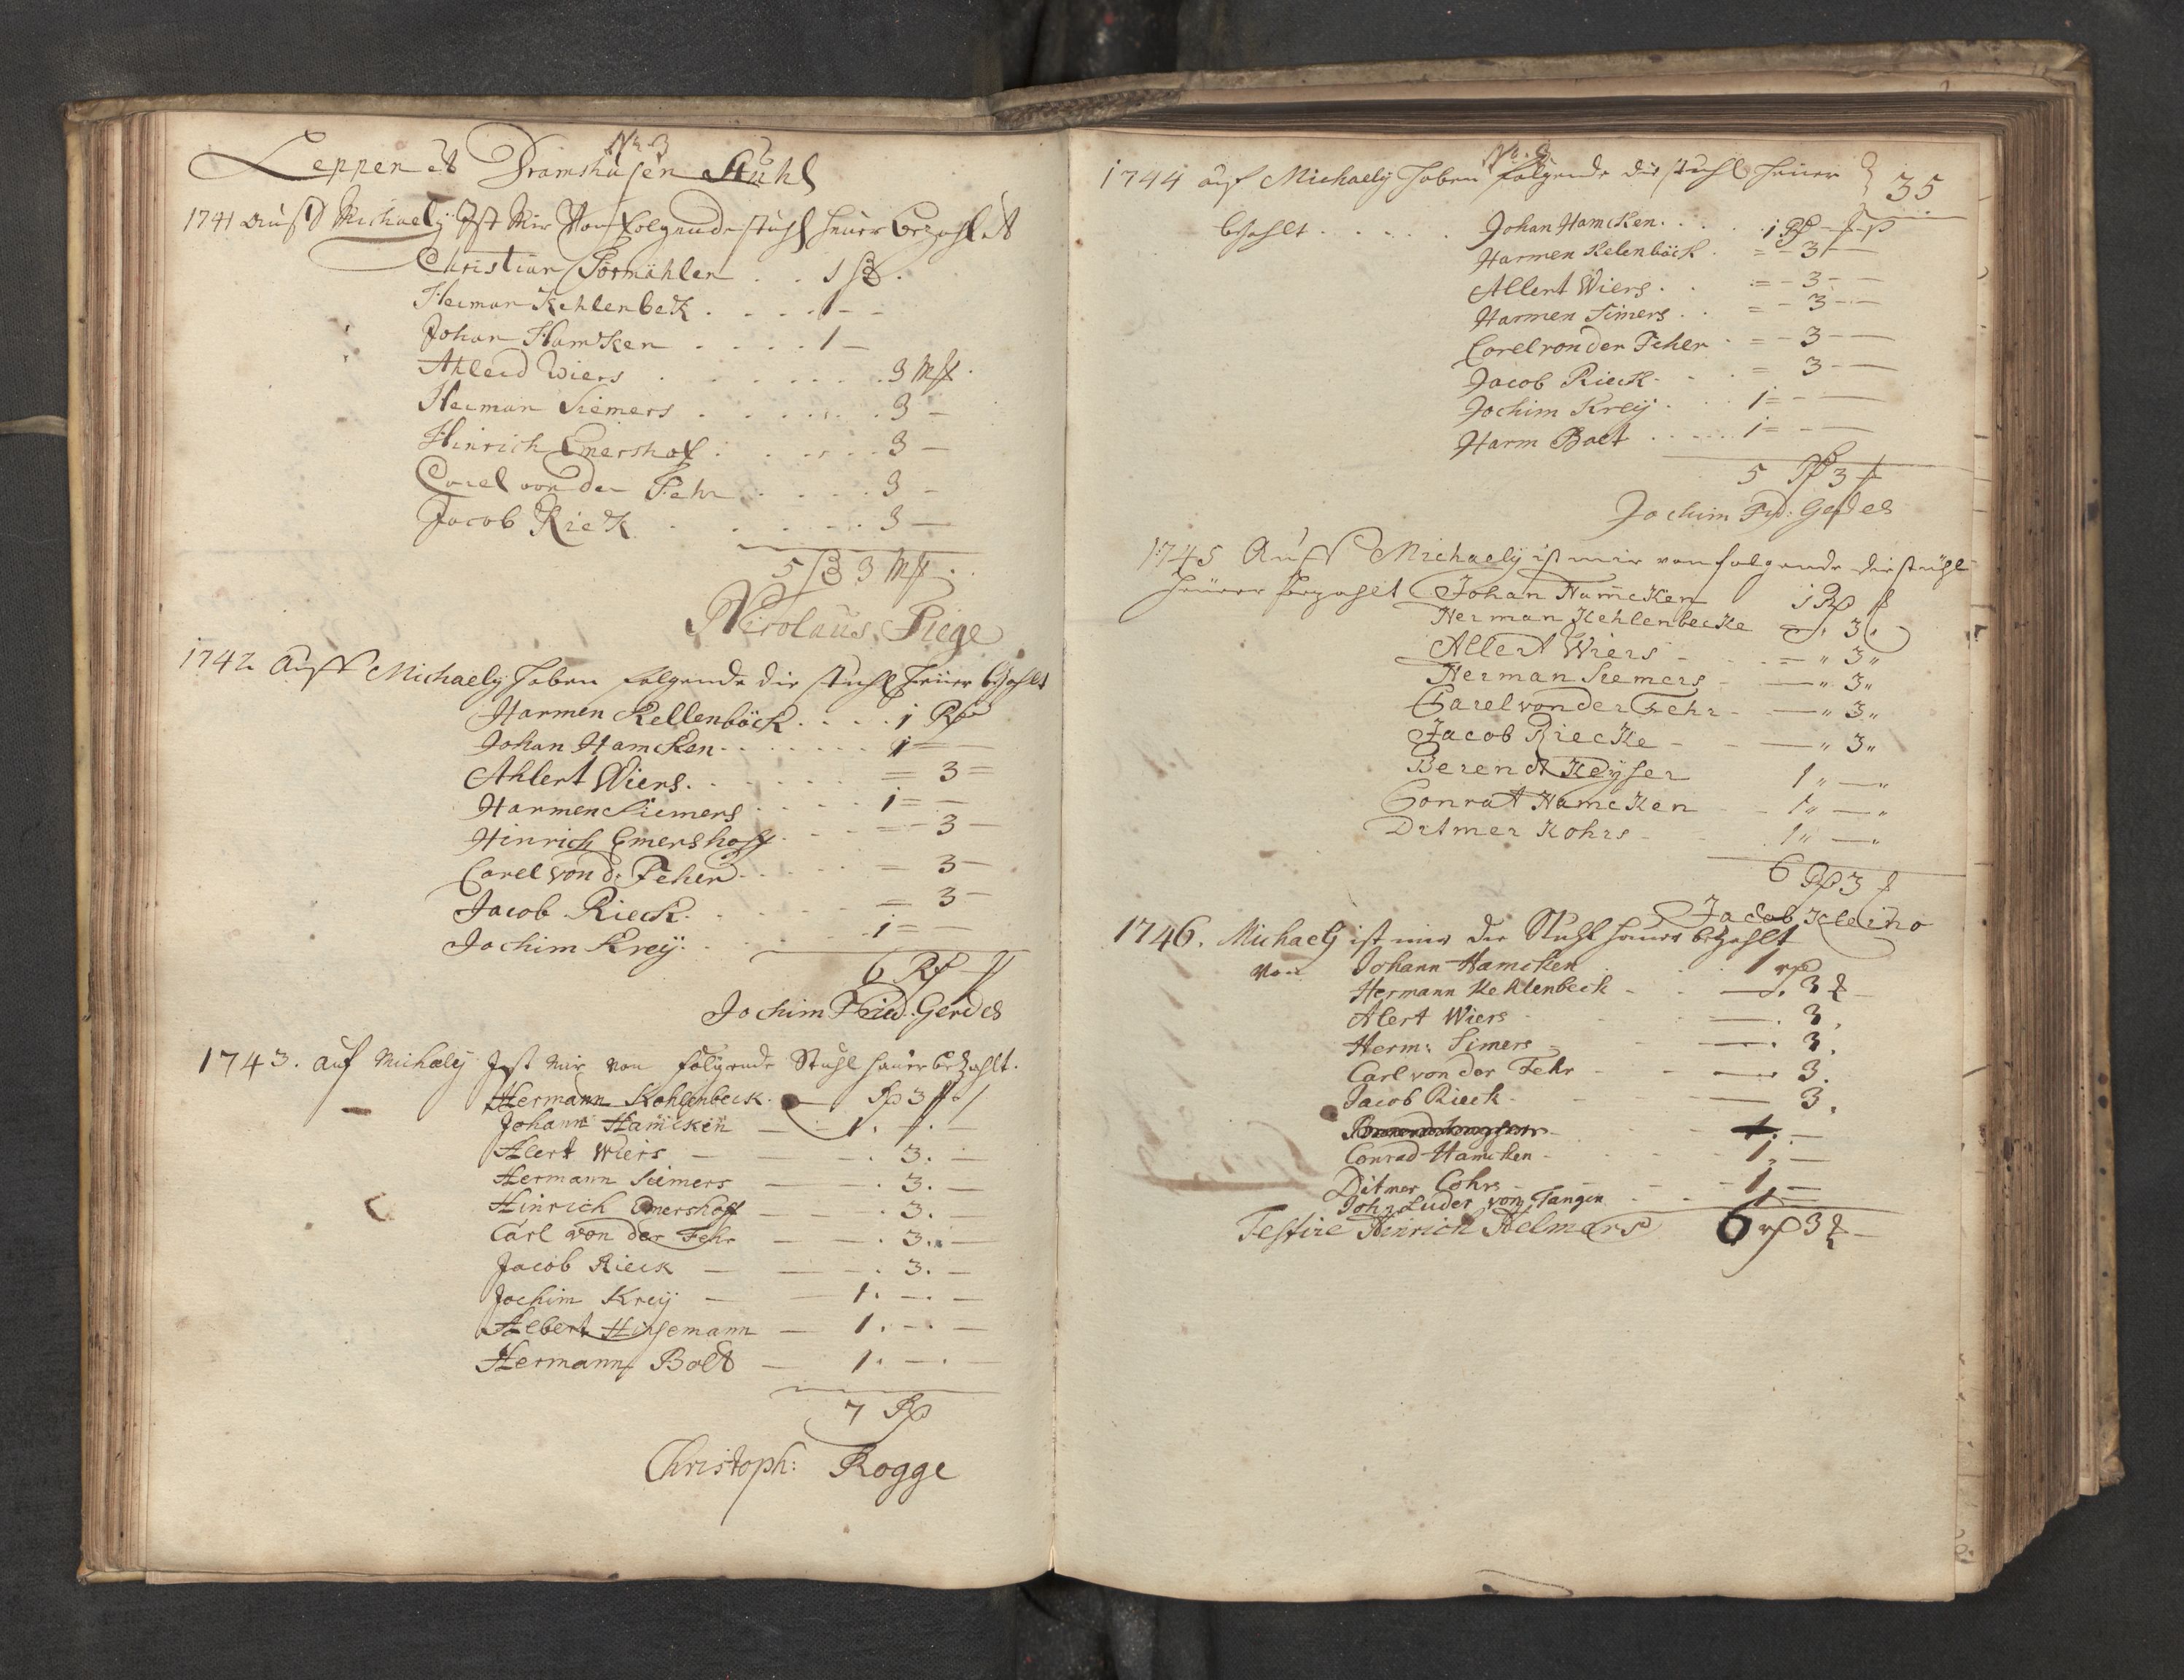 No 3
Leppen et Dramshusen Stuhl
1741 Auff Michaely Ist Mir Von folgende stuhl heuer bezahlet
Christian Pörmöhlen . . 1
Herman Kehlenbek . . . . 1 -
Johan Hamken . . . . 1 -
Ahlerd Wiers . . . . . . . 3 Mk
Herman Siemers . . . . . . 3 -
Hinrich Emershof . . . . . . 3 -
Carel von der Fehr . . . . . 3 -
Jacob Riek . . . . . . 3 -
5 3 Mk
Nicolaus Siege
1742 Auff Michaely haben folgende die stuhl heuer bezahlt
Harmen Kellenböck . . . . 1 R
Johan Hamcken . . . . . . . 1 = -
Ahlert Wiers . . . . . = 3 =
Harmen Siemers . . . . . 1 = -
Hinrich Emershoff . . . = 3 -
Carel von d: Fehr . . . . = 3 -
Jacob Rieck . . . . . = 3 -
Jochim Kreÿ . . . . . 1 = -
6 R
Jochim Frid: Gerdes
1743. auf Michaely Jst mir von folgende Stuhl heuer bezahlt.
Hermann Kohlenbeck. — 3
Johann Hamcken — 1. — . —
Alert Wiers — — . 3. —
Hermann Siemers — — . 3. —
Hinrich Emershoff — — . 3. —
Carl von der Fehr — — . 3. —
Jacob Rieck — — . 3. —
Jochim Kreÿ — — 1. — . —
Albert Hinsemann — 1. — . —
Hermann Bolt — 1. — . —
7 R
Christoph: Rogge
No. 3
1744 auf Michaely haben folgende die stuhl heuer
35
bezahlt . . . . . Johan Hamcken . . . . 1 R
Harmen Kelenböck . = - 3 -
Allert Wiers . . = - 3 - -
Harmen Simers . . = - 3 - -
Carel von der Fehr . = - 3 - -
Jacob Rieck - . . = 3 - -
Jochim Kreÿ . . . 1 = - -
Harm Bolt . . . . . 1 = - -
5 R 3
Jochim Frd: Gerdes
1745 Auff Michaelÿ ist mir von folgende die stuhl
heuer bezahlt Johan Hamcken 1 R
Herman Kehlenbecke 3
Allert Wiers - . = " 3 "
Herman Siemers - — " 3 "
Carel von der Fehr - — " 3 "
Jacob Riecke - - — " 3 "
Berendt Keyser 1 " — "
Conrat Hamcken - 1 " — "
Ditmer Kohrs - 1 " — "
6 R 3
Jacob Kleine
1746. Michaely ist mir die Stuhl heuer bezahlt
von Johann Hamcken . . 1
Hermann Kehlenbeck - — . 3
Alert Wiers - — . 3.
Herm: Simers - — . 3.
Carl von der Fehr - — . 3.
Jacob Rieck - — 3.
1. —
Conrad Hamcken - 1. —
Ditmer Cohrs - 1. —
Joh: Luder von Tangen . . 1 —
Testire Hinrich Helmers 6 3